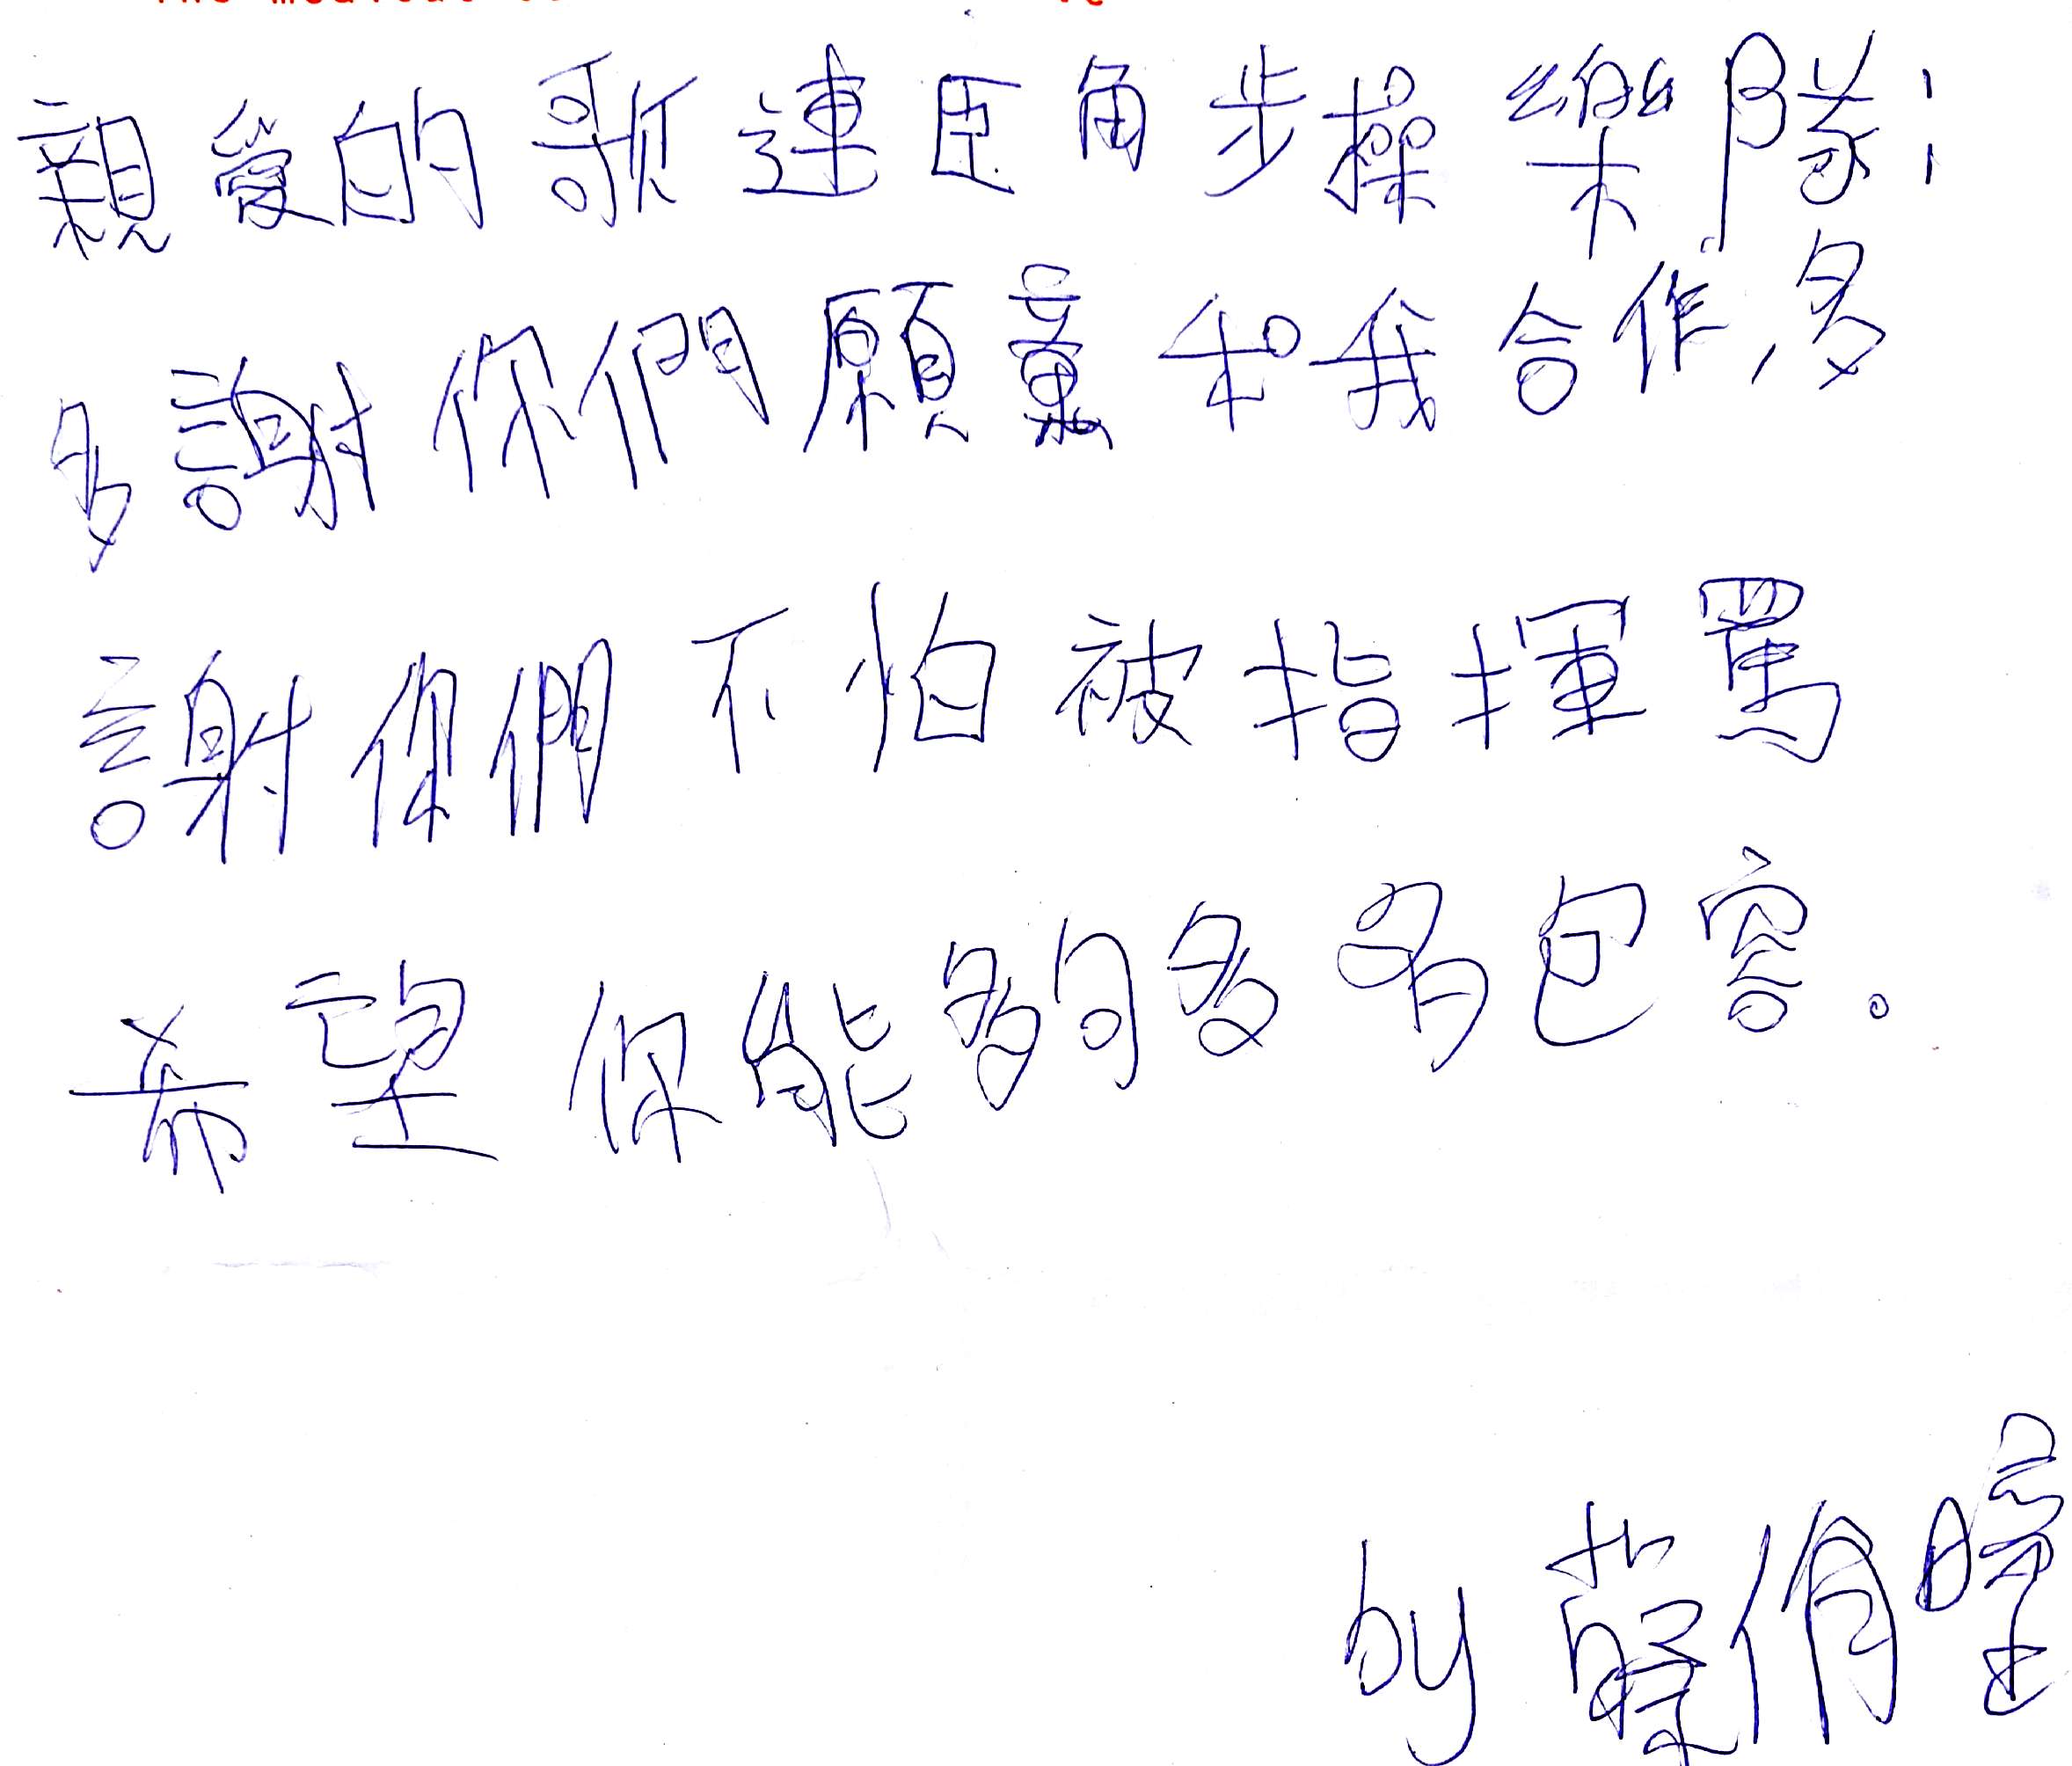 親愛的歌連臣角步操樂隊:
多謝你們願意和我合作,多
謝你們不怕被指揮罵
希望你能夠多多包容。
by 蔡俏瞳